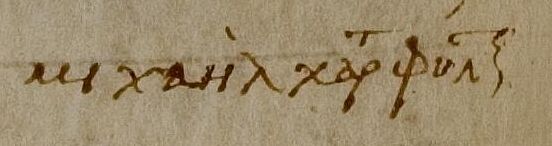 μιχαὴλ χαρ φύλξ